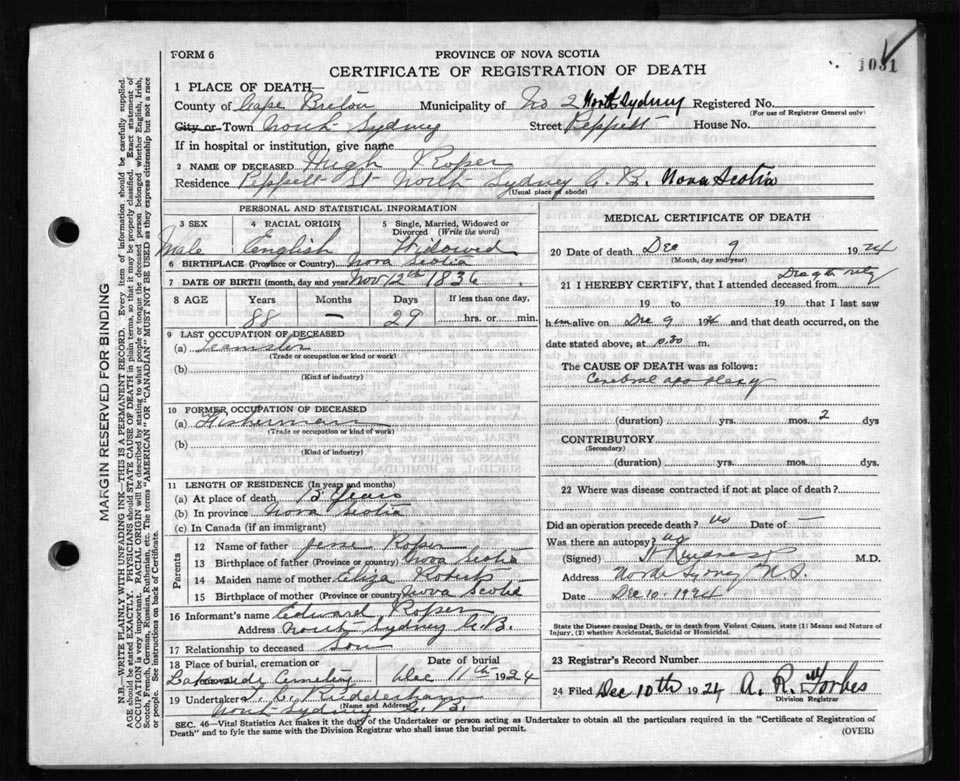 1031
FORM 6
PROVINCE OF NOVA SCOTIA
CERTIFICATE OF REGISTRATION OF DEATH
1 PLACE OF DEATH—
County of Cape Breton Municipality of No 2 North Sydney Registered No.
(For use of Registrar General only)
City or Town North Sydney Street Peppett House No.
If in hospital or institution, give name
2 NAME OF DECEASED Hugh Roper
Residence Peppett St North Sydney C. B. Nova Scotia
(Usual place of abode)
PERSONAL AND STATISTICAL INFORMATION
3 SEX 4 RACIAL ORIGIN 5 Single, Married, Widowed or Divorced (Write the word)
Male English Widowed
6 BIRTHPLACE (Province or Country) Nova Scotia
7 DATE OF BIRTH (month, day and year) Nov 12th 1836
8 AGE Years Months Days If less than one day,
88 — 29 hrs. or min.
9 LAST OCCUPATION OF DECEASED
(a) Teamster
(Trade or occupation or kind or work)
(b)
(Kind of industry)
10 FORMER OCCUPATION OF DECEASED
(a) Fisherman
(Trade or occupation or kind of work)
(b)
(Kind of industry)
11 LENGTH OF RESIDENCE (In years and months)
(a) At place of death 15 Years
(b) In province Nova Scotia
(c) In Canada (if an immigrant)
Parents
12 Name of father Jesse Roper
13 Birthplace of father (Province or country) Nova Scotia
14 Maiden name of mother Eliza
15 Birthplace of mother (Province or country) Nova Scotia
16 Informant's name Edward Roper
Address North Sydney C. B.
17 Relationship to deceased Son
18 Place of burial, cremation or Date of burial
Cemetery Dec 11th 1924
19 Undertaker
(Name and Address)
North Sydney C. B.
MEDICAL CERTIFICATE OF DEATH
20 Date of death Dec 9 1924
(Month, day and year)
21 I HEREBY CERTIFY, that I attended deceased from
19 to 19 that I last saw
him alive on Dec 9 1924 and that death occurred, on the
date stated above, at 10.30 m.
The CAUSE OF DEATH was as follows:
Cerebral apoplexy
(duration) yrs. mos. 2 dys
CONTRIBUTORY
(Secondary)
(duration) yrs. mos. dys.
22 Where was disease contracted if not at place of death?
Did an operation precede death? No Date of —
Was there an autopsy? No
(Signed) M.D.
Address North Sydney N.S.
Date Dec 10 - 1924
State the Disease causing Death, or in death from Violent Causes, state (1) Means and Nature of
Injury, (2) whether Accidental, Suicidal or Homicidal.
23 Registrar's Record Number
24 Filed Dec 10th 1924 A. R. Forbes
Division Registrar
SEC. 46—Vital Statistics Act makes it the duty of the Undertaker or person acting as Undertaker to obtain all the particulars required in the "Certificate of Registration of
Death" and to fyle the same with the Division Registrar who shall issue the burial permit.
(OVER)
MARGIN RESERVED FOR BINDING
N.B.—WRITE PLAINLY WITH UNFADING INK—THIS IS A PERMANENT RECORD. Every item of information should be carefully supplied.
AGE should be stated EXACTLY. PHYSICIANS should STATE CAUSE OF DEATH in plain terms, so that it may be properly classified. Exact statement of
OCCUPATION is very important. RACIAL ORIGIN will be described by stating to what people or tongue the deceased person belonged whether English, Irish,
Scotch, French, German, Russian, Ruthenian, etc. The terms "AMERICAN" OR "CANADIAN" MUST NOT BE USED as they express citizenship but not a race
or people. See instructions on back of Certificate.